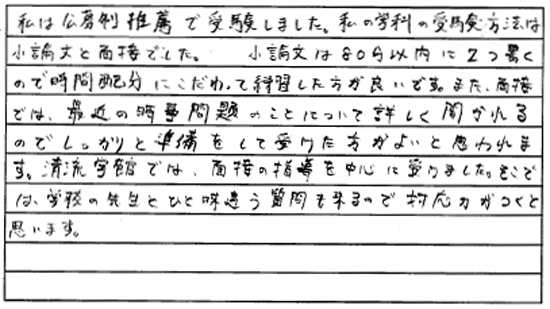 私は公募制推薦で受験しました。私の学科の受験方法は
小論文と面接でした。 小論文は80分以内に2つ書く
ので時間配分にこだわって練習した方が良いです。また、面接
では、最近の時事問題のことについて詳しく聞かれる
のでしっかりと準備をして受けた方がよいと思われま
す。清流学館では、面接の指導を中心に受けました。そこで
は、学校の先生とひと味違う質問も来るので対応力がつくと
思います。